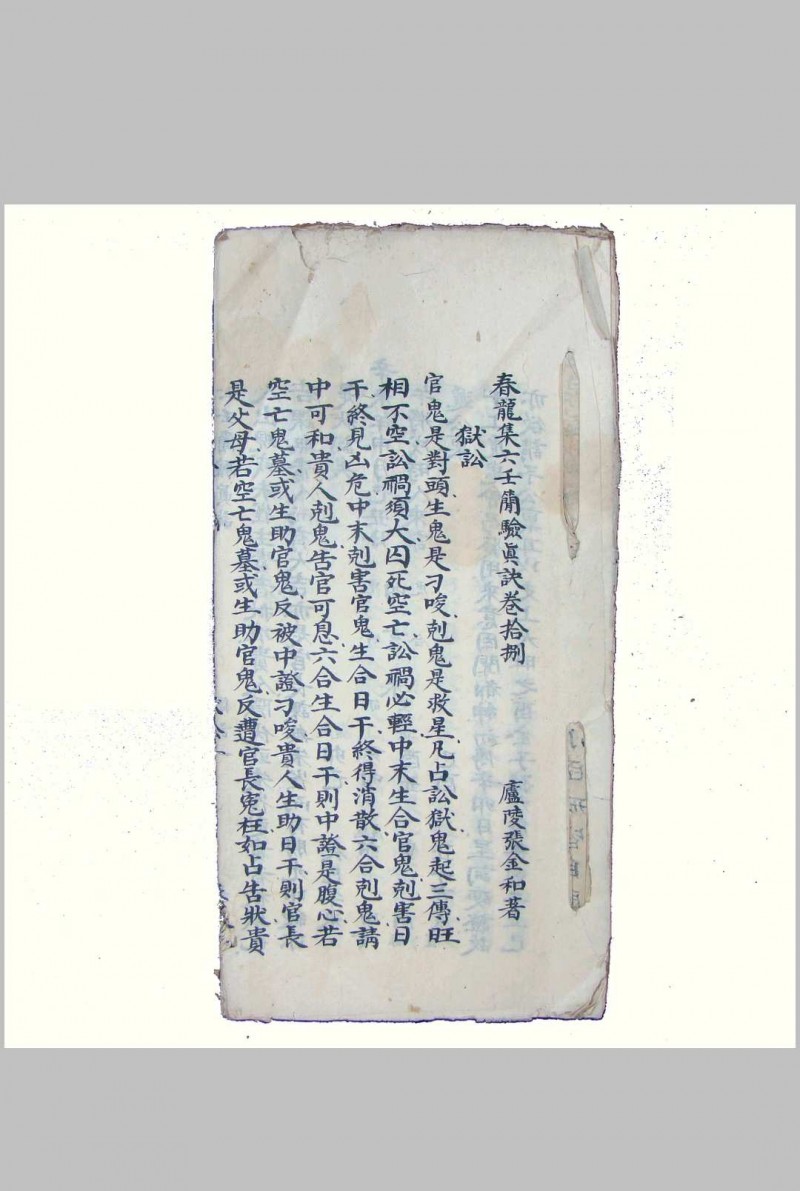 春龍集六壬簡驗眞訣卷拾捌　　　廬陵張金和著
獄訟
官鬼是對頭生鬼是刁唆剋鬼是救星凡占訟獄鬼起三傳旺
相不空訟禍須大囚死空亡訟禍必輕中末生合官鬼剋害日
干終見凶危中末剋害官鬼生合日干終得消散六合剋鬼請
中可和貴人剋鬼告官可息六合生合日干則中證是腹心若
空亡鬼墓或生助官鬼反被中證刁唆貴人生助日干則官長
是父母若空亡鬼墓或生助官鬼反遭官長冤枉如占告狀貴